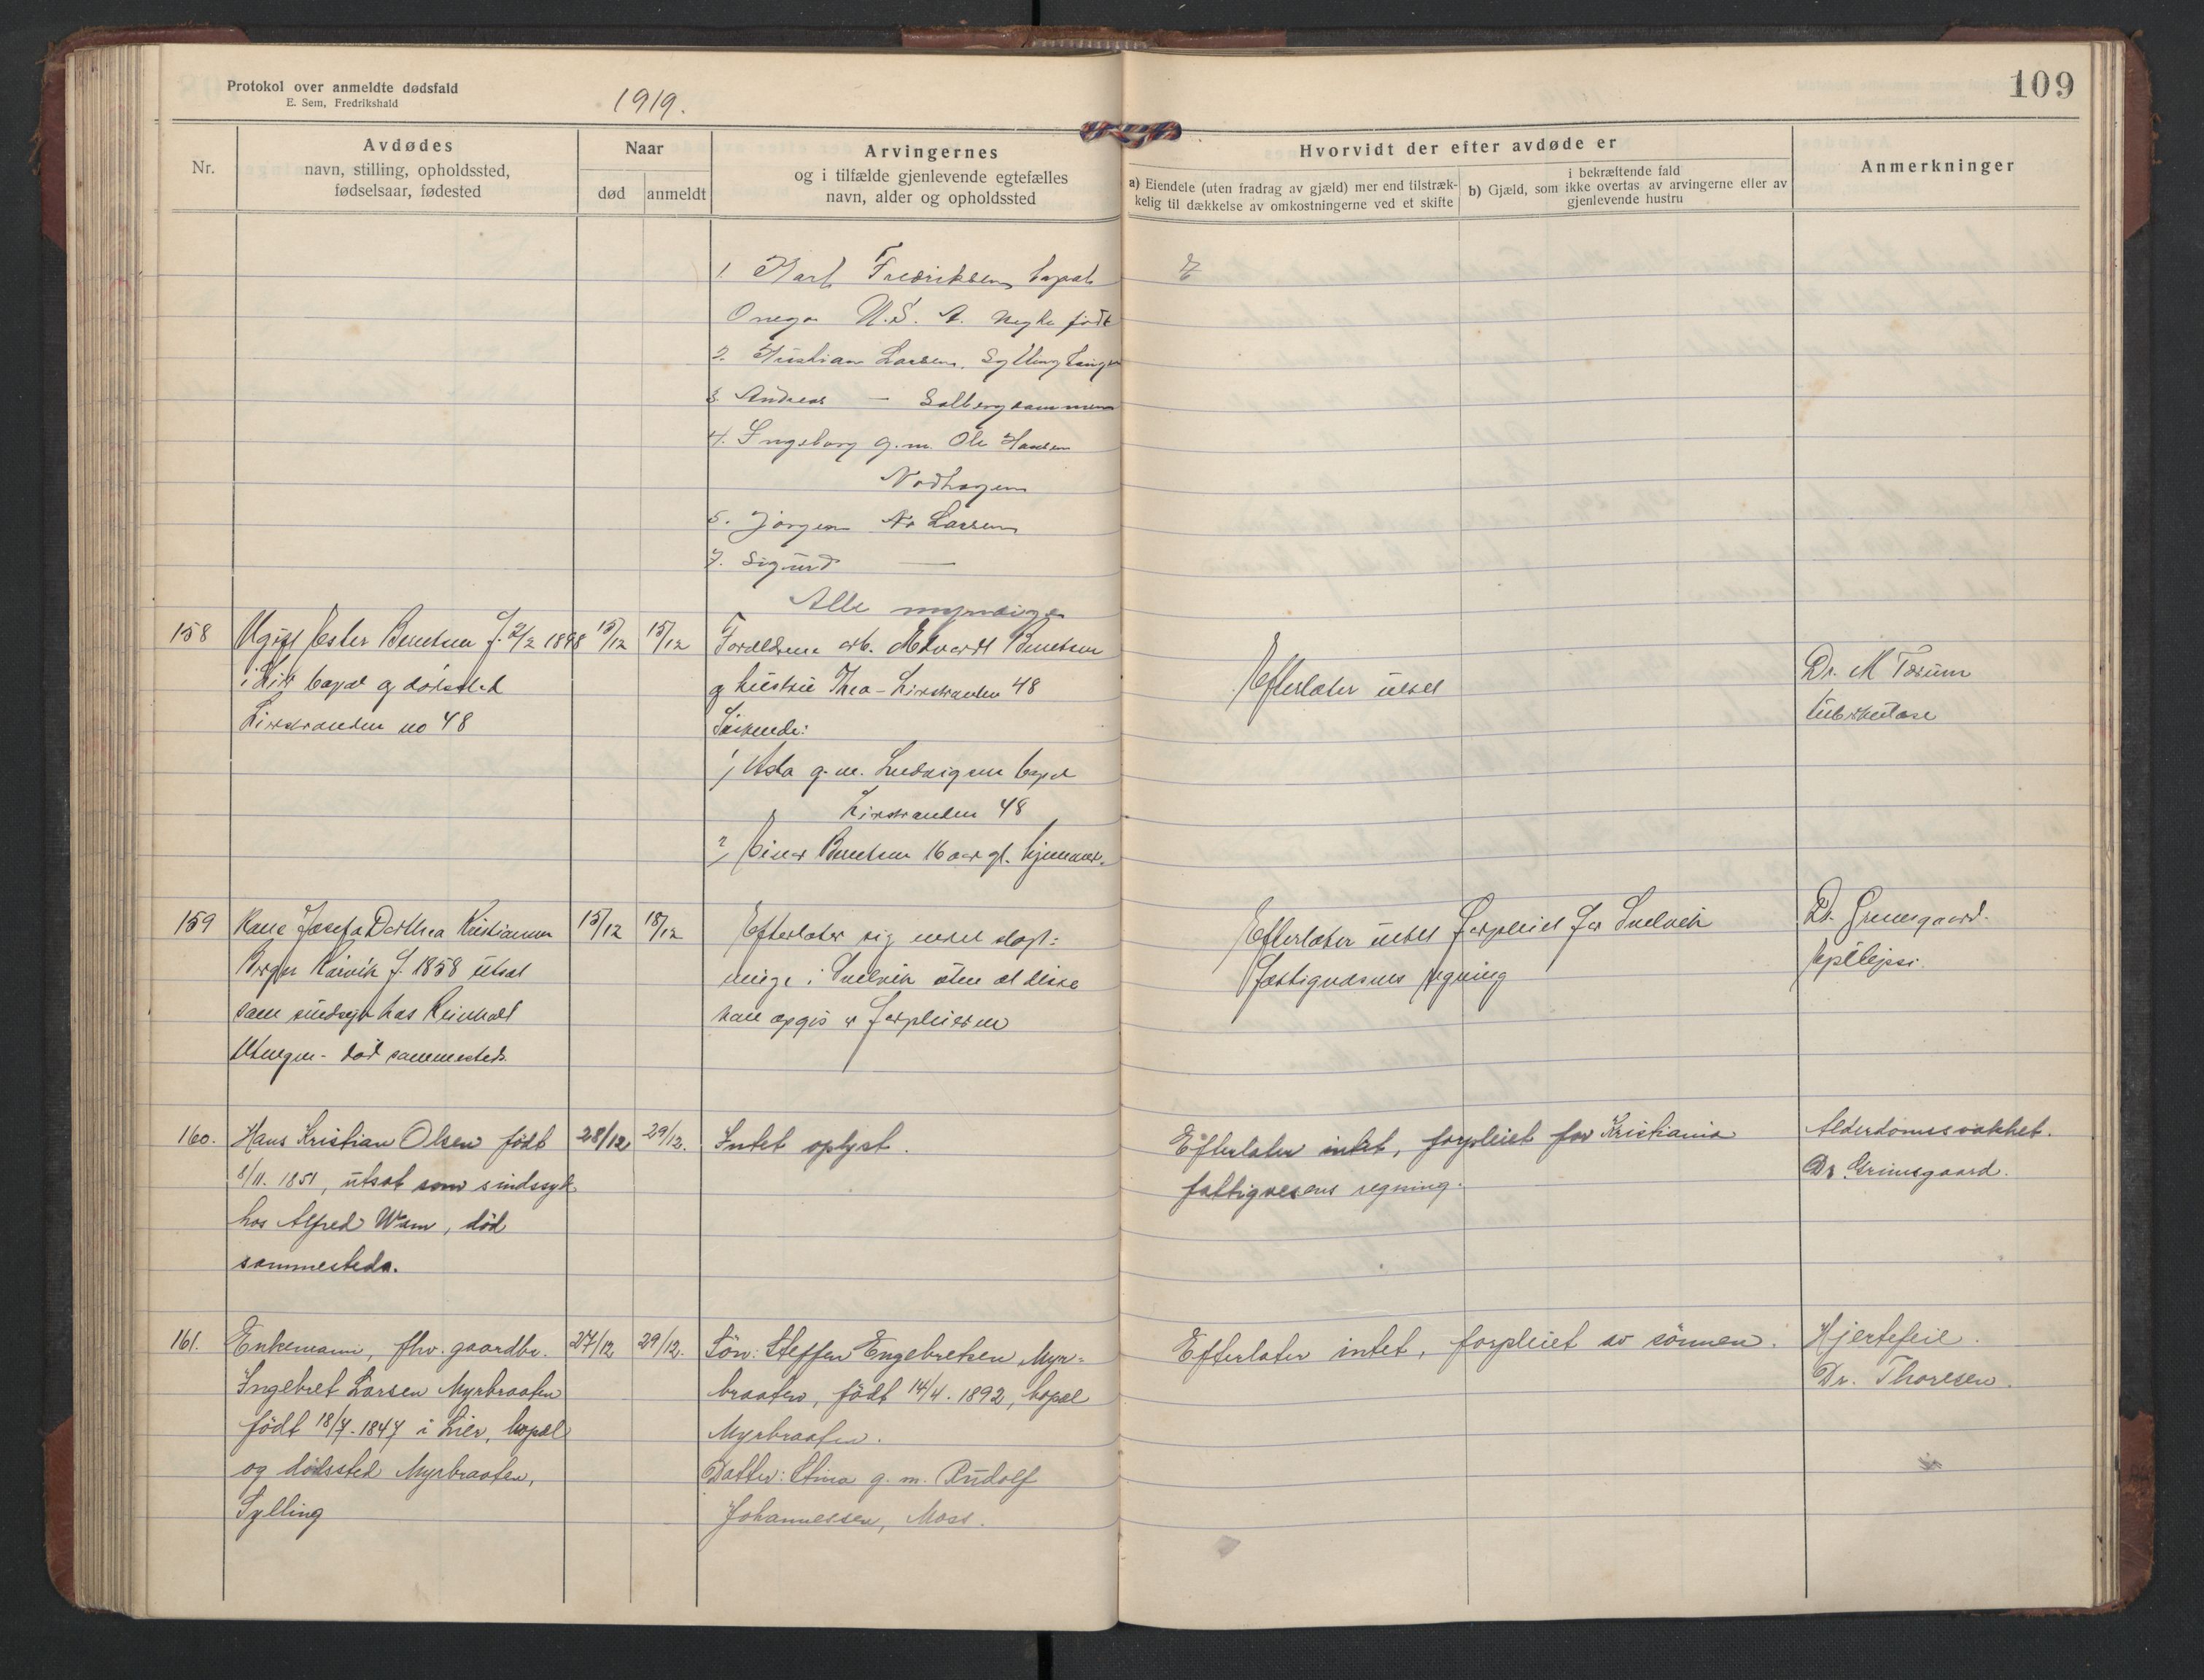 Protokol over anmeldte dødsfald
E. Sem, Fredrikshald
1919.
109
Nr.
Avdødes
navn, stilling, opholdssted,
fødselsaar, fødested
Naar
død
anmeldt
Arvingernes
og i tilfælde gjenlevende egtefælles
navn, alder og opholdssted
Hvorvidt der efter avdøde er
a) Eiendele (uten fradrag av gjæld) mer end tilstræk-
kelig til dækkelse av omkostningerne ved et skifte
i bekræftende fald
b) Gjæld, som ikke overtas av arvingerne eller av
gjenlevende hustru
Anmerkninger
1. Karl Fredriksen bopal
U. S. A. født
2. Kristian Larsen, Sylling
3. Andreas — Solberg
4. Ingeborg g. m. Ole Hansen
5. Jørgen Larsen
7. Sigurd —
Alle myndige
158
Ugift Ester Berntsen f. 2/2 1898
i Lier bopæl og dødssted
Lierstranden no 48
15/12
15/12
Forældrene arb. Edvardt Berntsen
og hustru Thea - Lierstranden 48
Søskende:
1) g. m. Ludvigsen bopæl
Lierstranden 48
2) Einar Berntsen 16 aar gl. hjemmev.
Efterlater intet
Dr. M Tørum
tuberkulose
159
Josefa Dorthea Kristiansen
f. 1858 utsat
som sindsyk hos Reinholt
død sammesteds.
15/12
18/12
Efterlater sig slægt=
ninge i Svelvik uten at disse
kan opgis forpleiet
Efterlater intet forpleiet for Svelvik
fattigvæsens regning
Dr. Grimsgaard.
epilepsi.
160.
Hans Kristian Olsen født
8/11. 1851, utsat som sindssyk
hos Alfred Wam, død
sammesteds.
28/12
29/12.
Intet oplyst.
Efterlater intet, forpleiet for Kristiania
fattigvesens regning.
Alderdomssvakhet.
Dr Grimsgaard.
161.
Enkemann, fhv. gaardbr.
Ingebret Larsen Myrbraaten
født 18/7-1847 i Lier, bopæl
og dødssted Myrbraaten,
Sylling
27/12
29/12.
Søn: Steffen Engebretsen Myr=
braaten, født 14/4. 1892, bopæl
Myrbraaten.
Datter: Stina g. m. Rudolf
Johannessen, Moss.
Efterlater intet, forpleiet av sønnen.
Hjertefeil.
Dr. Thoresen.